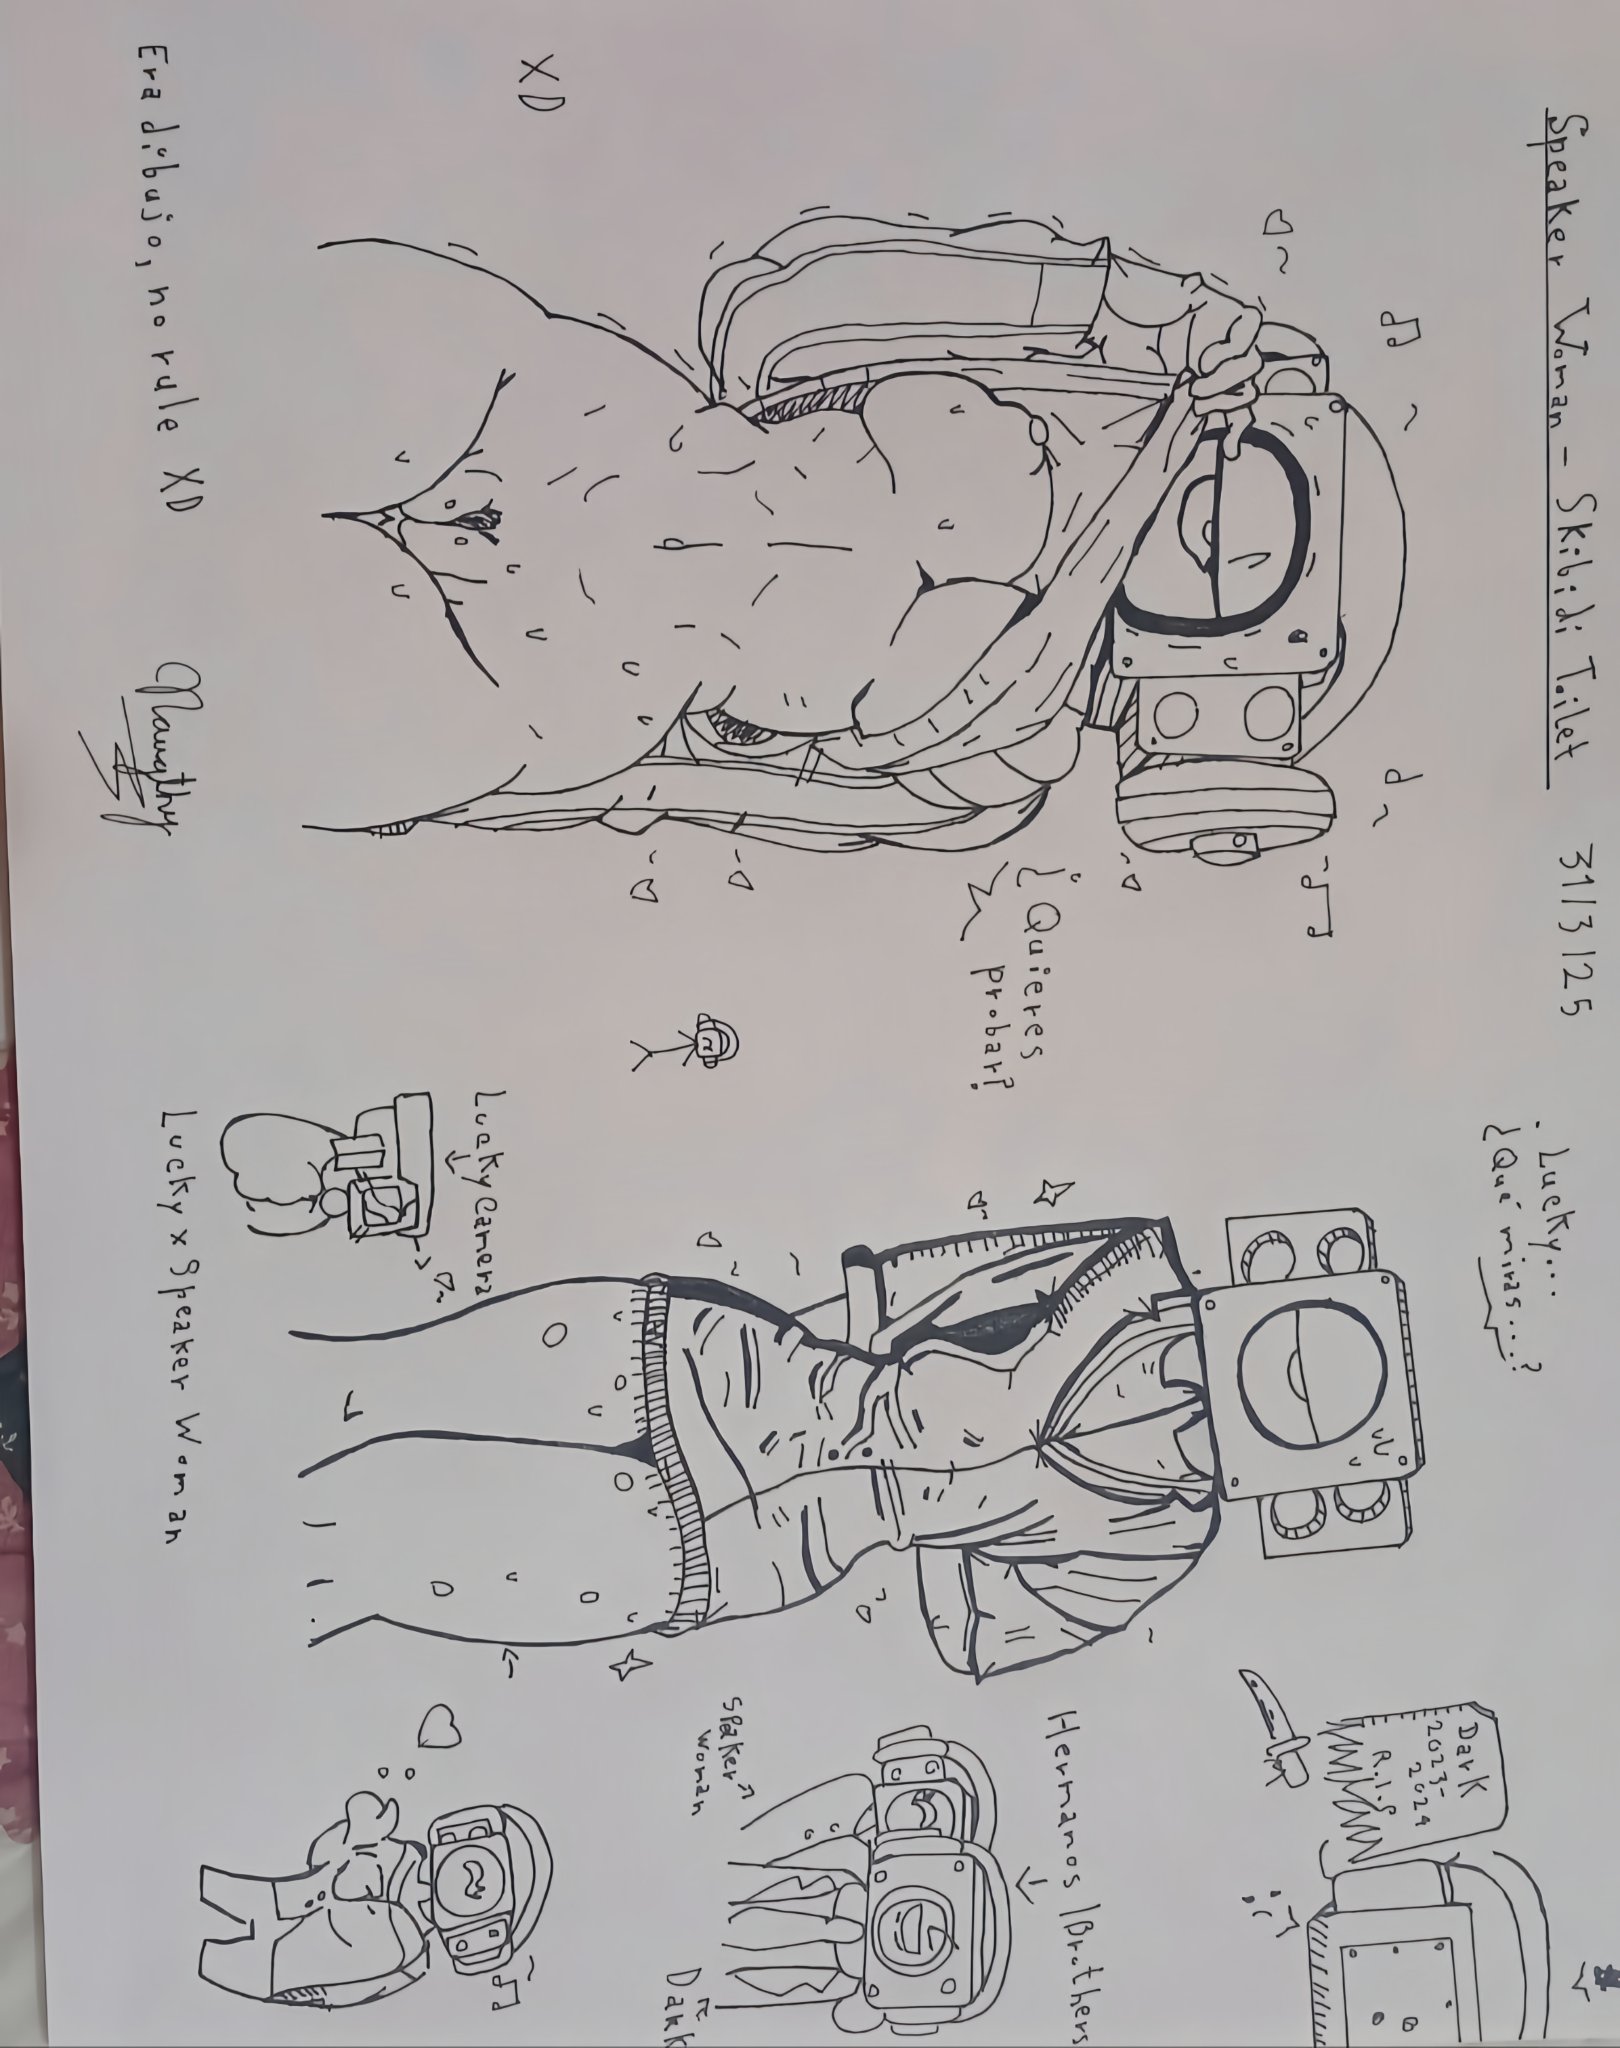 Speaker Woman - Skibidi Toilet 31/3/25
XD
Era dibujo, no rule XD
¿Quieres
probar?
Lucky...
¿Qué miras...?
Lucky Camera
Lucky x Speaker Woman
Dark
2023-
2024
R.I.P
Hermanos / Brothers
Speaker
Woman
Dark